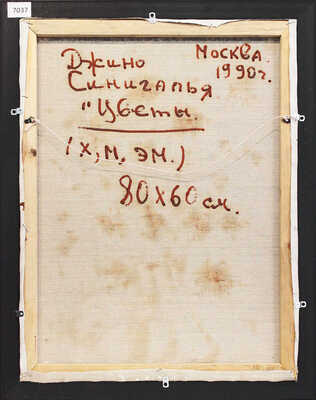 7037
Джино Москва.
Синигалья 1990г.
"Цветы.
(х, м, эм.)
80х60 см.